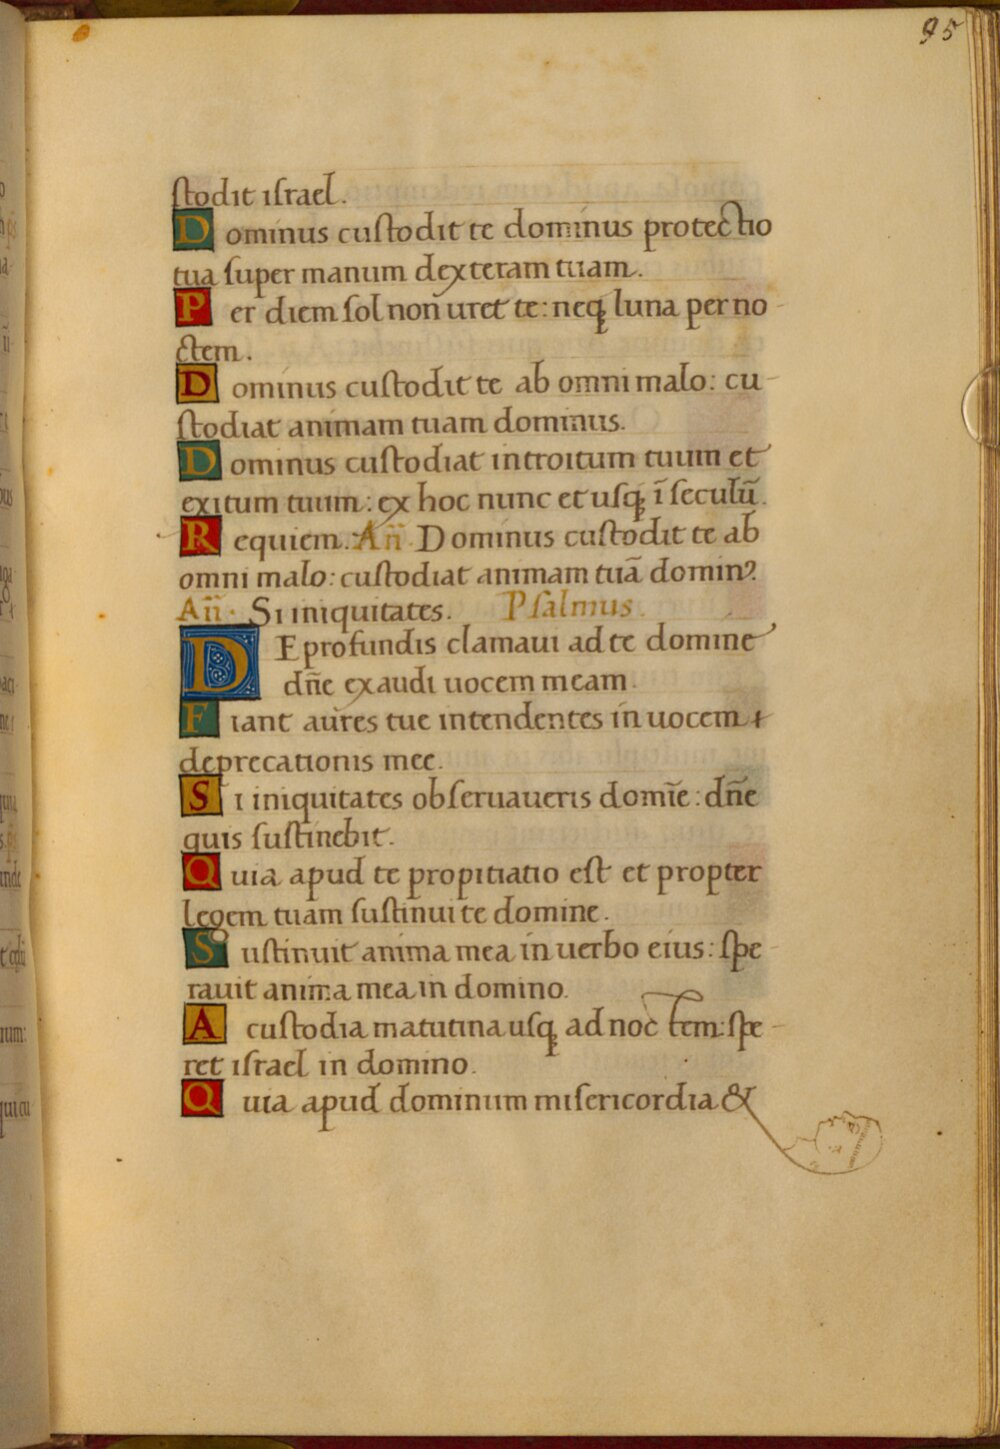 95
stodit israel.
Dominus custodit te dominus protectio
tua super manum dexteram tuam.
Per diem sol non uret te: neqꝫ luna per no-
ctem.
Dominus custodit te ab omni malo: cu-
stodiat animam tuam dominus.
Dominus custodiat introitum tuum et
exitum tuum: ex hoc nunc et usqꝫ ī seculū.
Requiem. Añ. Dominus custodit te ab
omni malo: custodiat animam tuā dominꝰ.
Añ. Si iniquitates. Psalmus.
DE profundis clamaui ad te domine
dñe exaudi uocem meam.
Fiant aures tue intendentes in uocem
deprecationis mee.
Si iniquitates obseruaueris domīe: dñe
quis sustinebit.
Quia apud te propitiatio est et propter
legem tuam sustinui te domine.
Sustinuit anima mea in uerbo eius: spe-
rauit anima mea in domino.
A custodia matutina usqꝫ ad noctem: spe-
ret israel in domino.
Quia apud dominum misericordia &